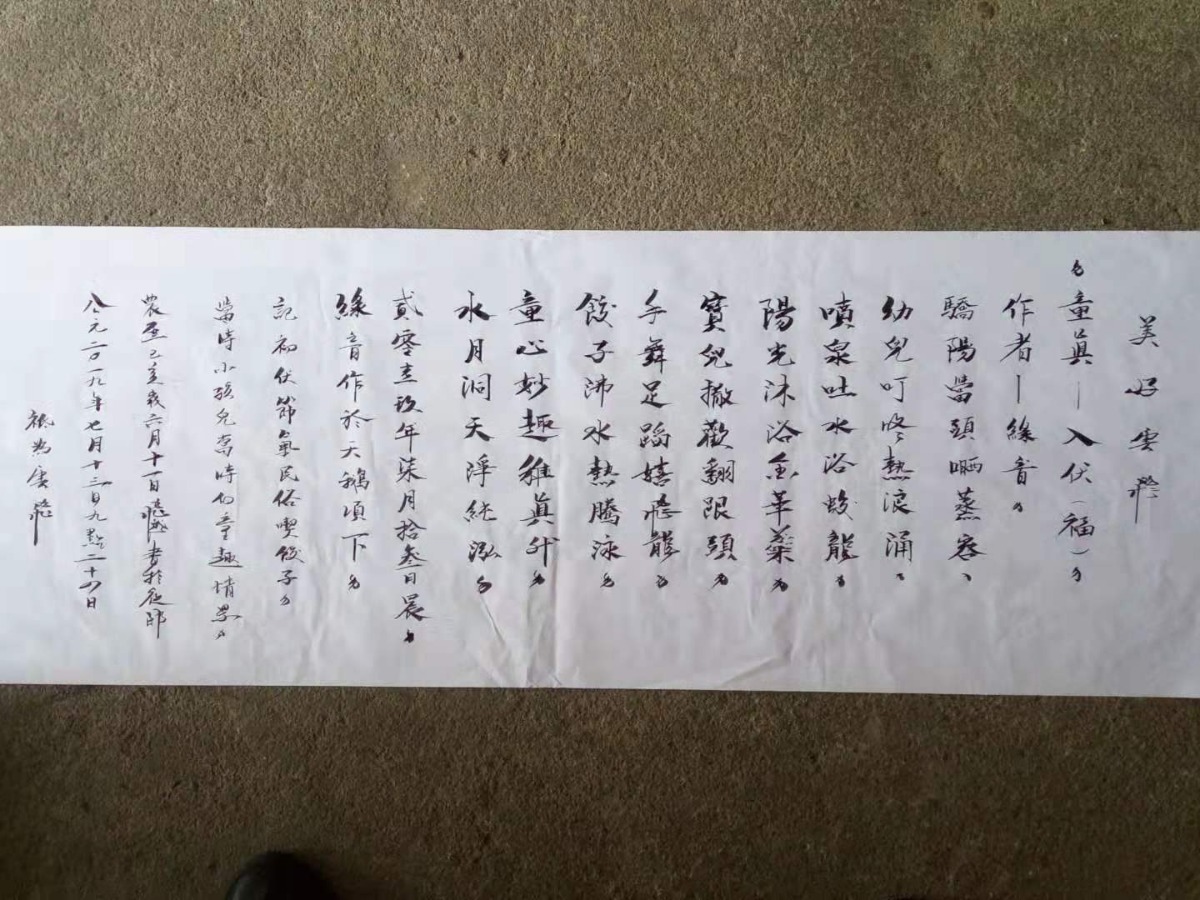 美好雲飛
童真—入伏(福)
作者—緣音。
驕陽當頭晒蒸容、
幼兒叮咚熱浪涌、
噴泉吐水浴蛟龍。
陽光沐浴金苹蘂。
寶兒撒歡翻跟頭。
手舞足蹈嬉飛龍。
餃子沸水熱騰泳。
童心妙趣雅真升。
水月洞天淨純泓。
貳零壹玖年柒月拾叁日晨。
緣音作於天鵝項下。
記初伏節氣民俗喫餃子。
當時小孩兒當時的童趣情景。
農歷己亥歲六月十一日 書於
公元二〇一九年七月十三日九點二十四
雲飛